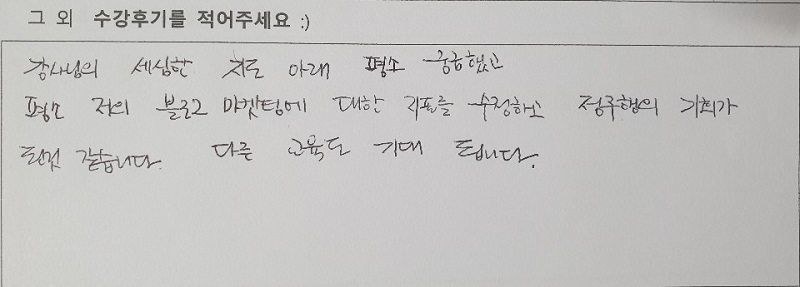 그 외 수강후기를 적어주세요 :)
강사님의 세심한 지도 아래 평소 궁금했고
평소 저의 블로그 마켓팅에 대한 지표를 수정하고 정주행의 기회가
된것 같습니다. 다른 교육도 기대 됩니다.